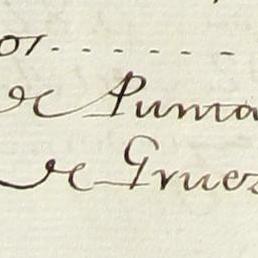 or - - - - - -
de Punta
de Grues